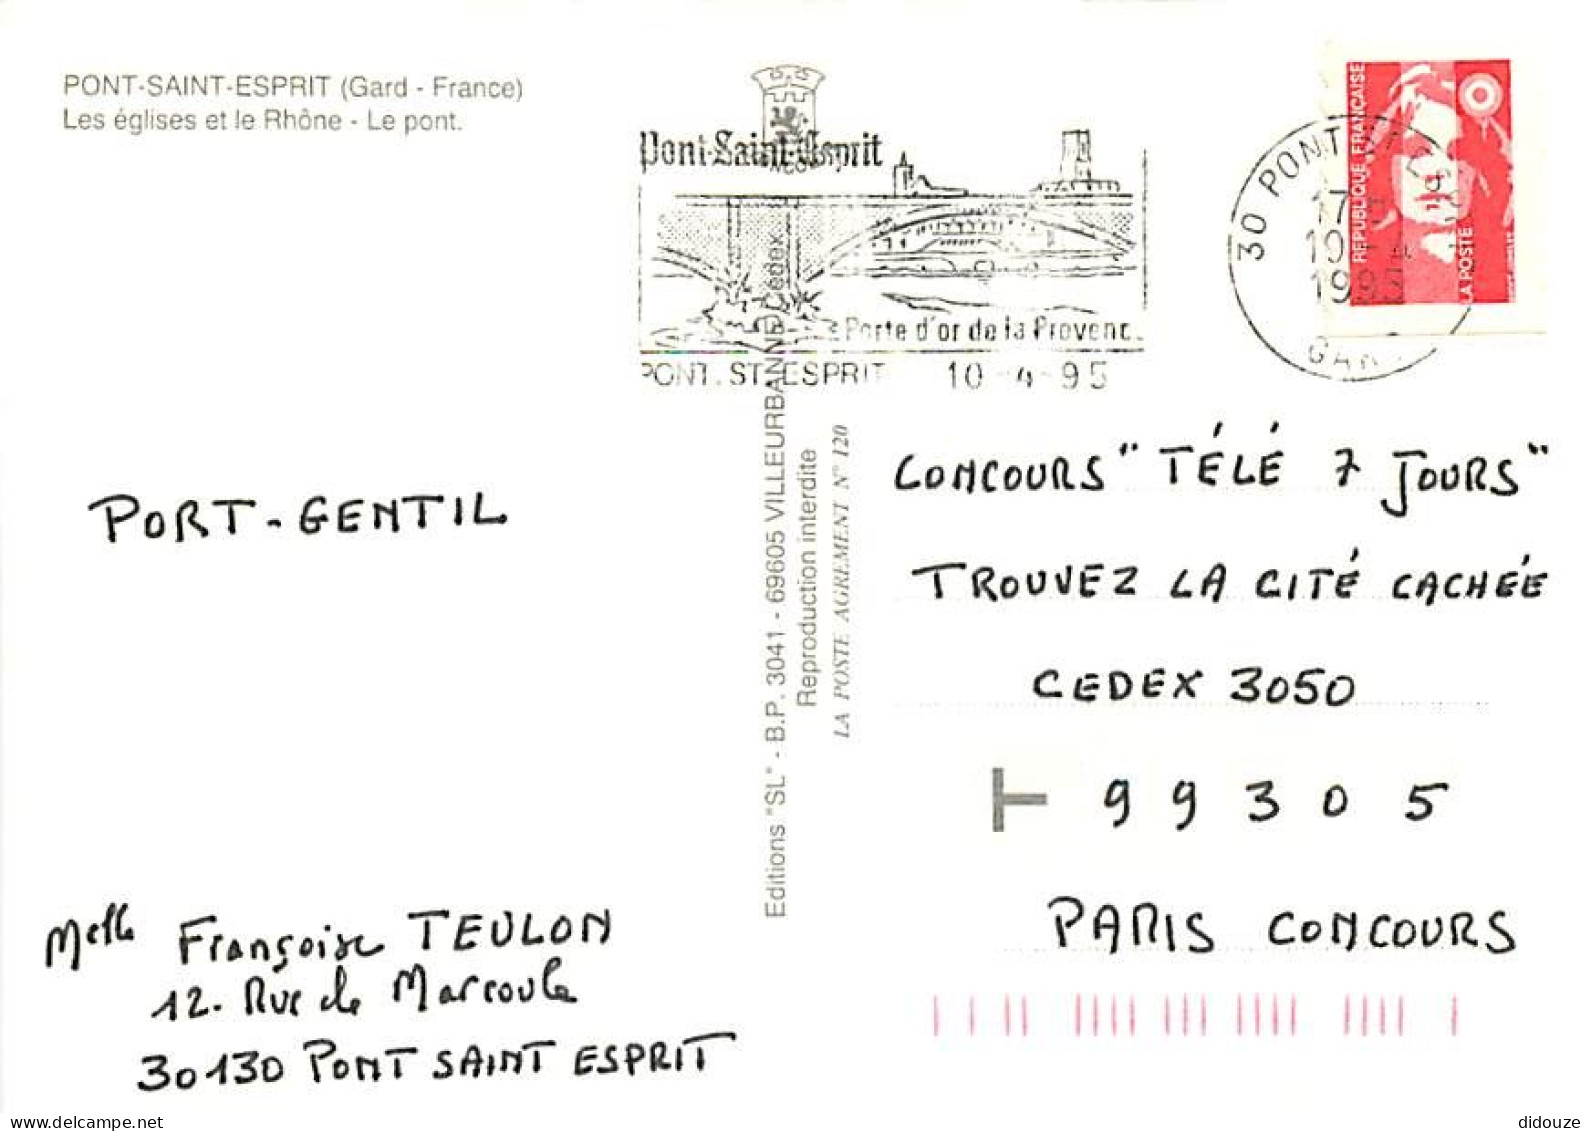 PONT-SAINT-ESPRIT (Gard - France)
Les églises et le Rhône - Le pont.
Pont-Saint-Esprit
Porte d'or de la Provenc
PONT. ST ESPRIT 10-4-95
30 PONT ST
17
10-4
1995
GAR
REPUBLIQUE FRANÇAISE
LA POSTE
Editions "SL" - B.P. 3041 - 69605 VILLEURBANNE Cedex
Reproduction interdite
LA POSTE AGREMENT N° 120
PORT-GENTIL
CONCOURS "TÉLÉ 7 JOURS"
TROUVEZ LA CITÉ CACHÉE
CEDEX 3050
99305
PARIS CONCOURS
Melle Françoise TEULON
12. Rue de Marcoule
30130 PONT SAINT ESPRIT
www.delcampe.net
didouze